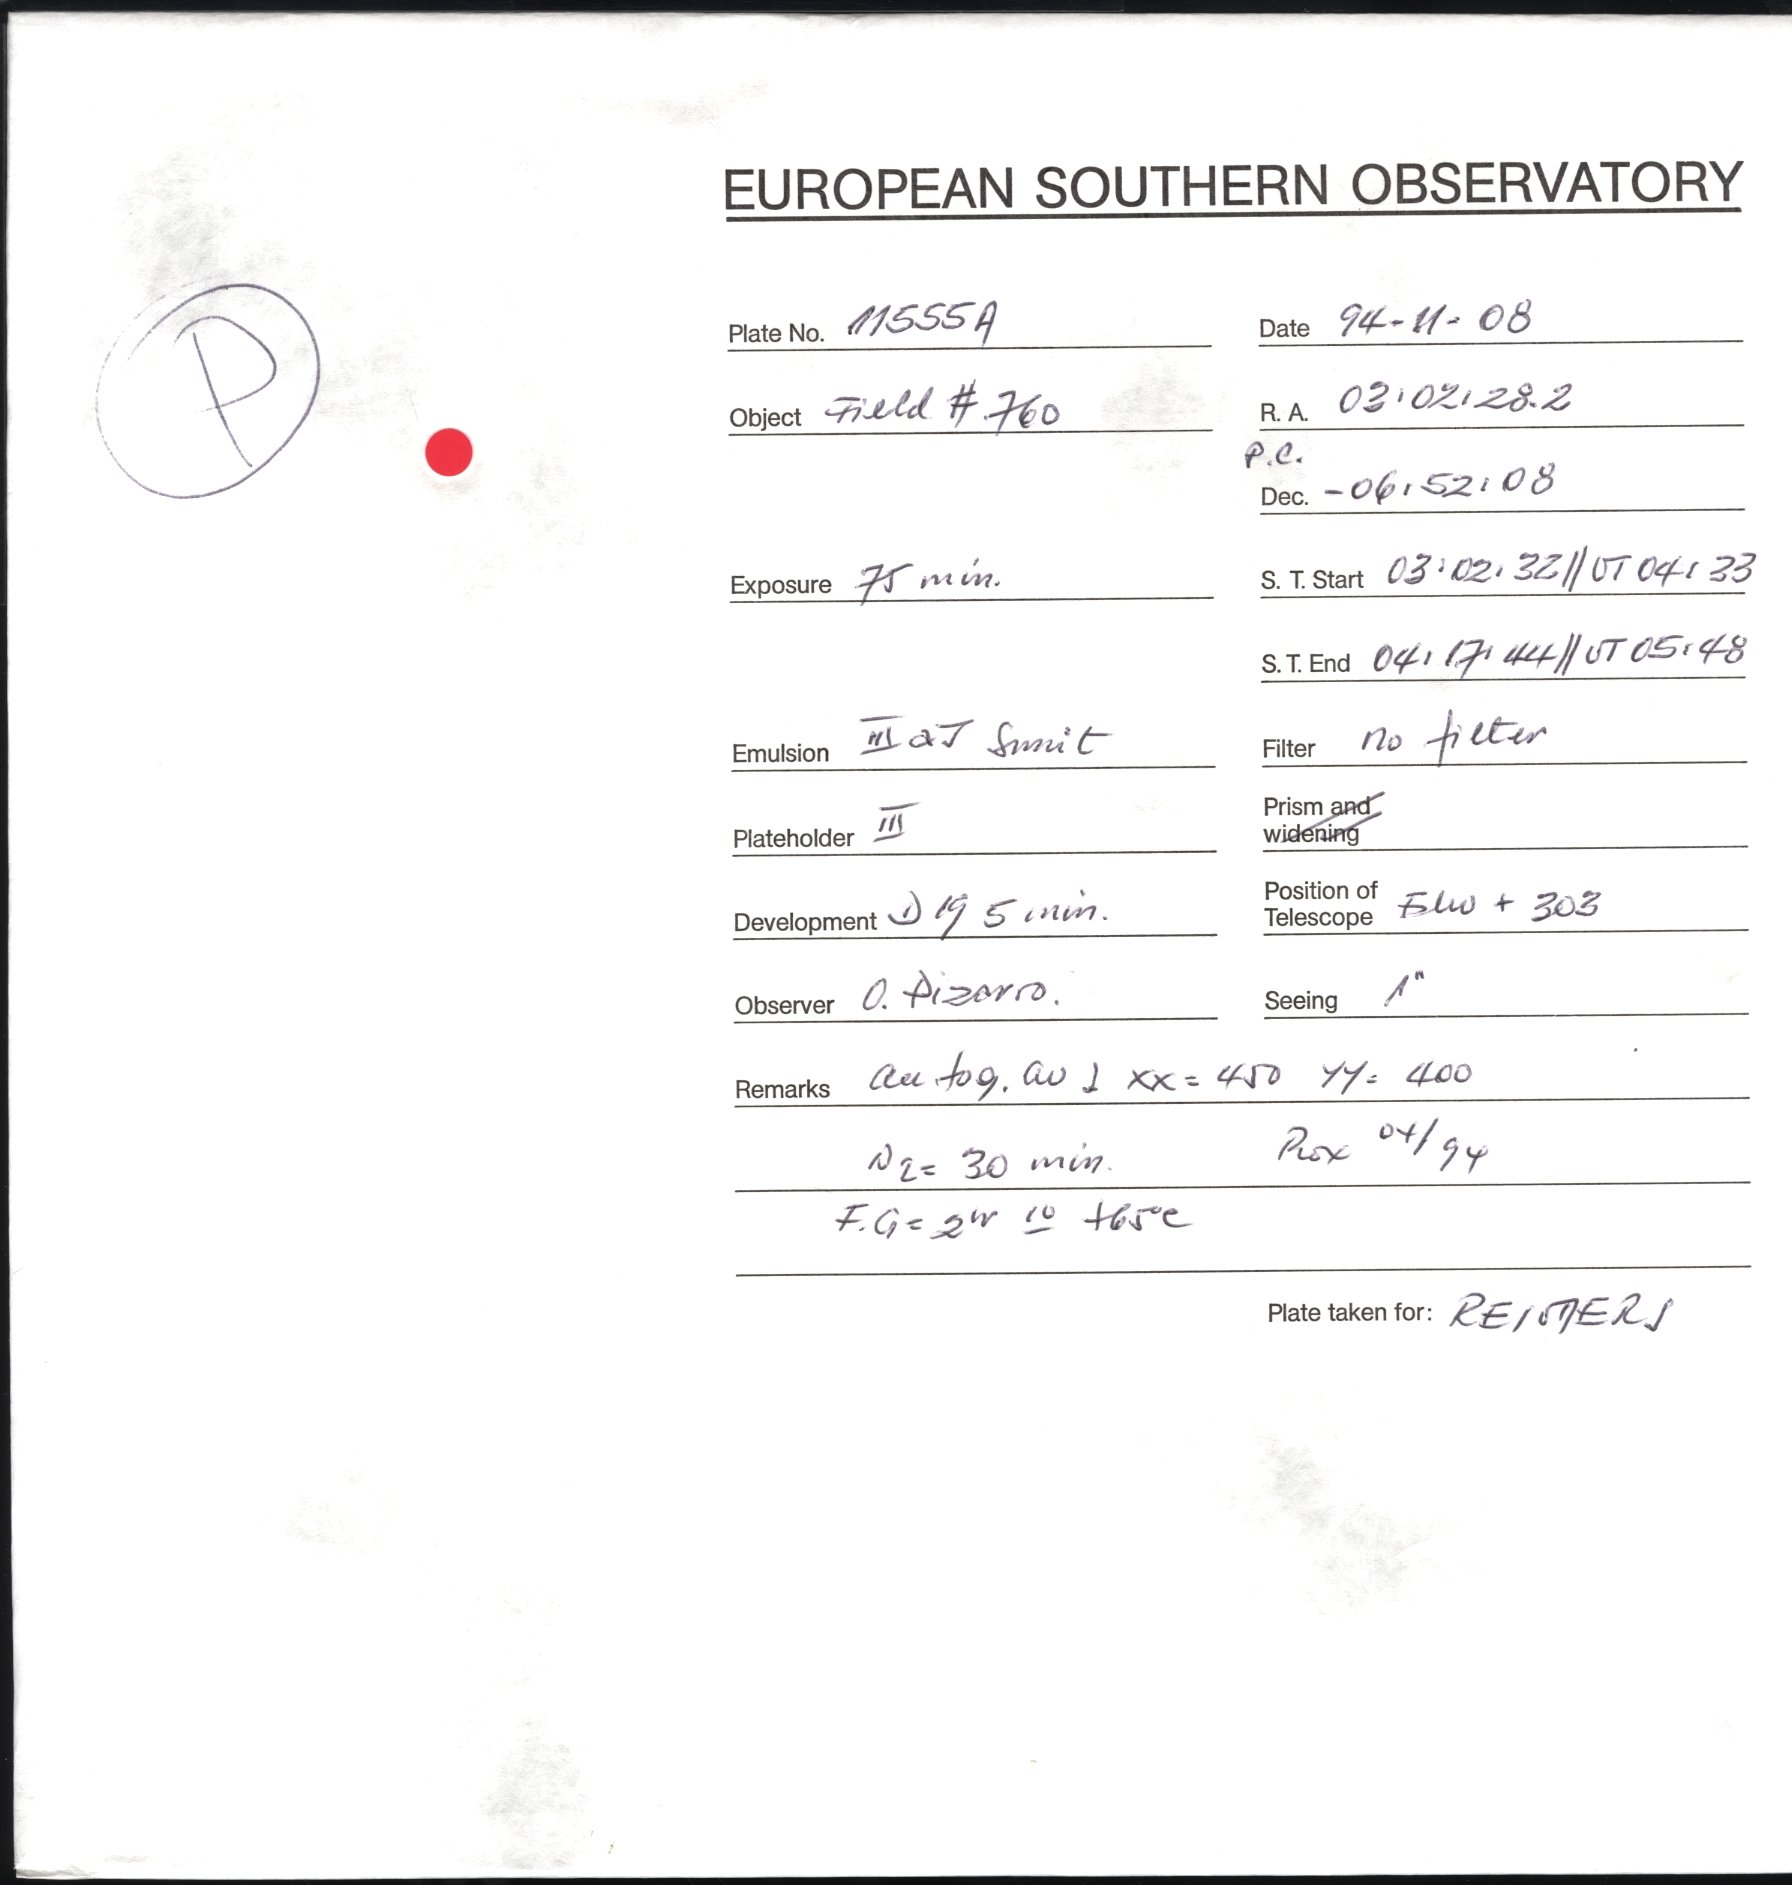 EUROPEAN SOUTHERN OBSERVATORY
P
Plate No. 11555A Date 94-11-08
Object Field # 760 R. A. 03:02:28.2
P.C.
Dec. -06:52:08
Exposure 75 min. S. T. Start 03:02:32//UT 04:33
S. T. End 04:17:44//UT 05:48
Emulsion III aJ Filter no filter
Plateholder III Prism and widening
Development D 19 5 min. Position of Telescope + 303
Observer O. Pizarro. Seeing 1"
Remarks xx = 450 YY = 400
N2 = 30 min. 04/94
F.G = +65°C
Plate taken for: REIMERS